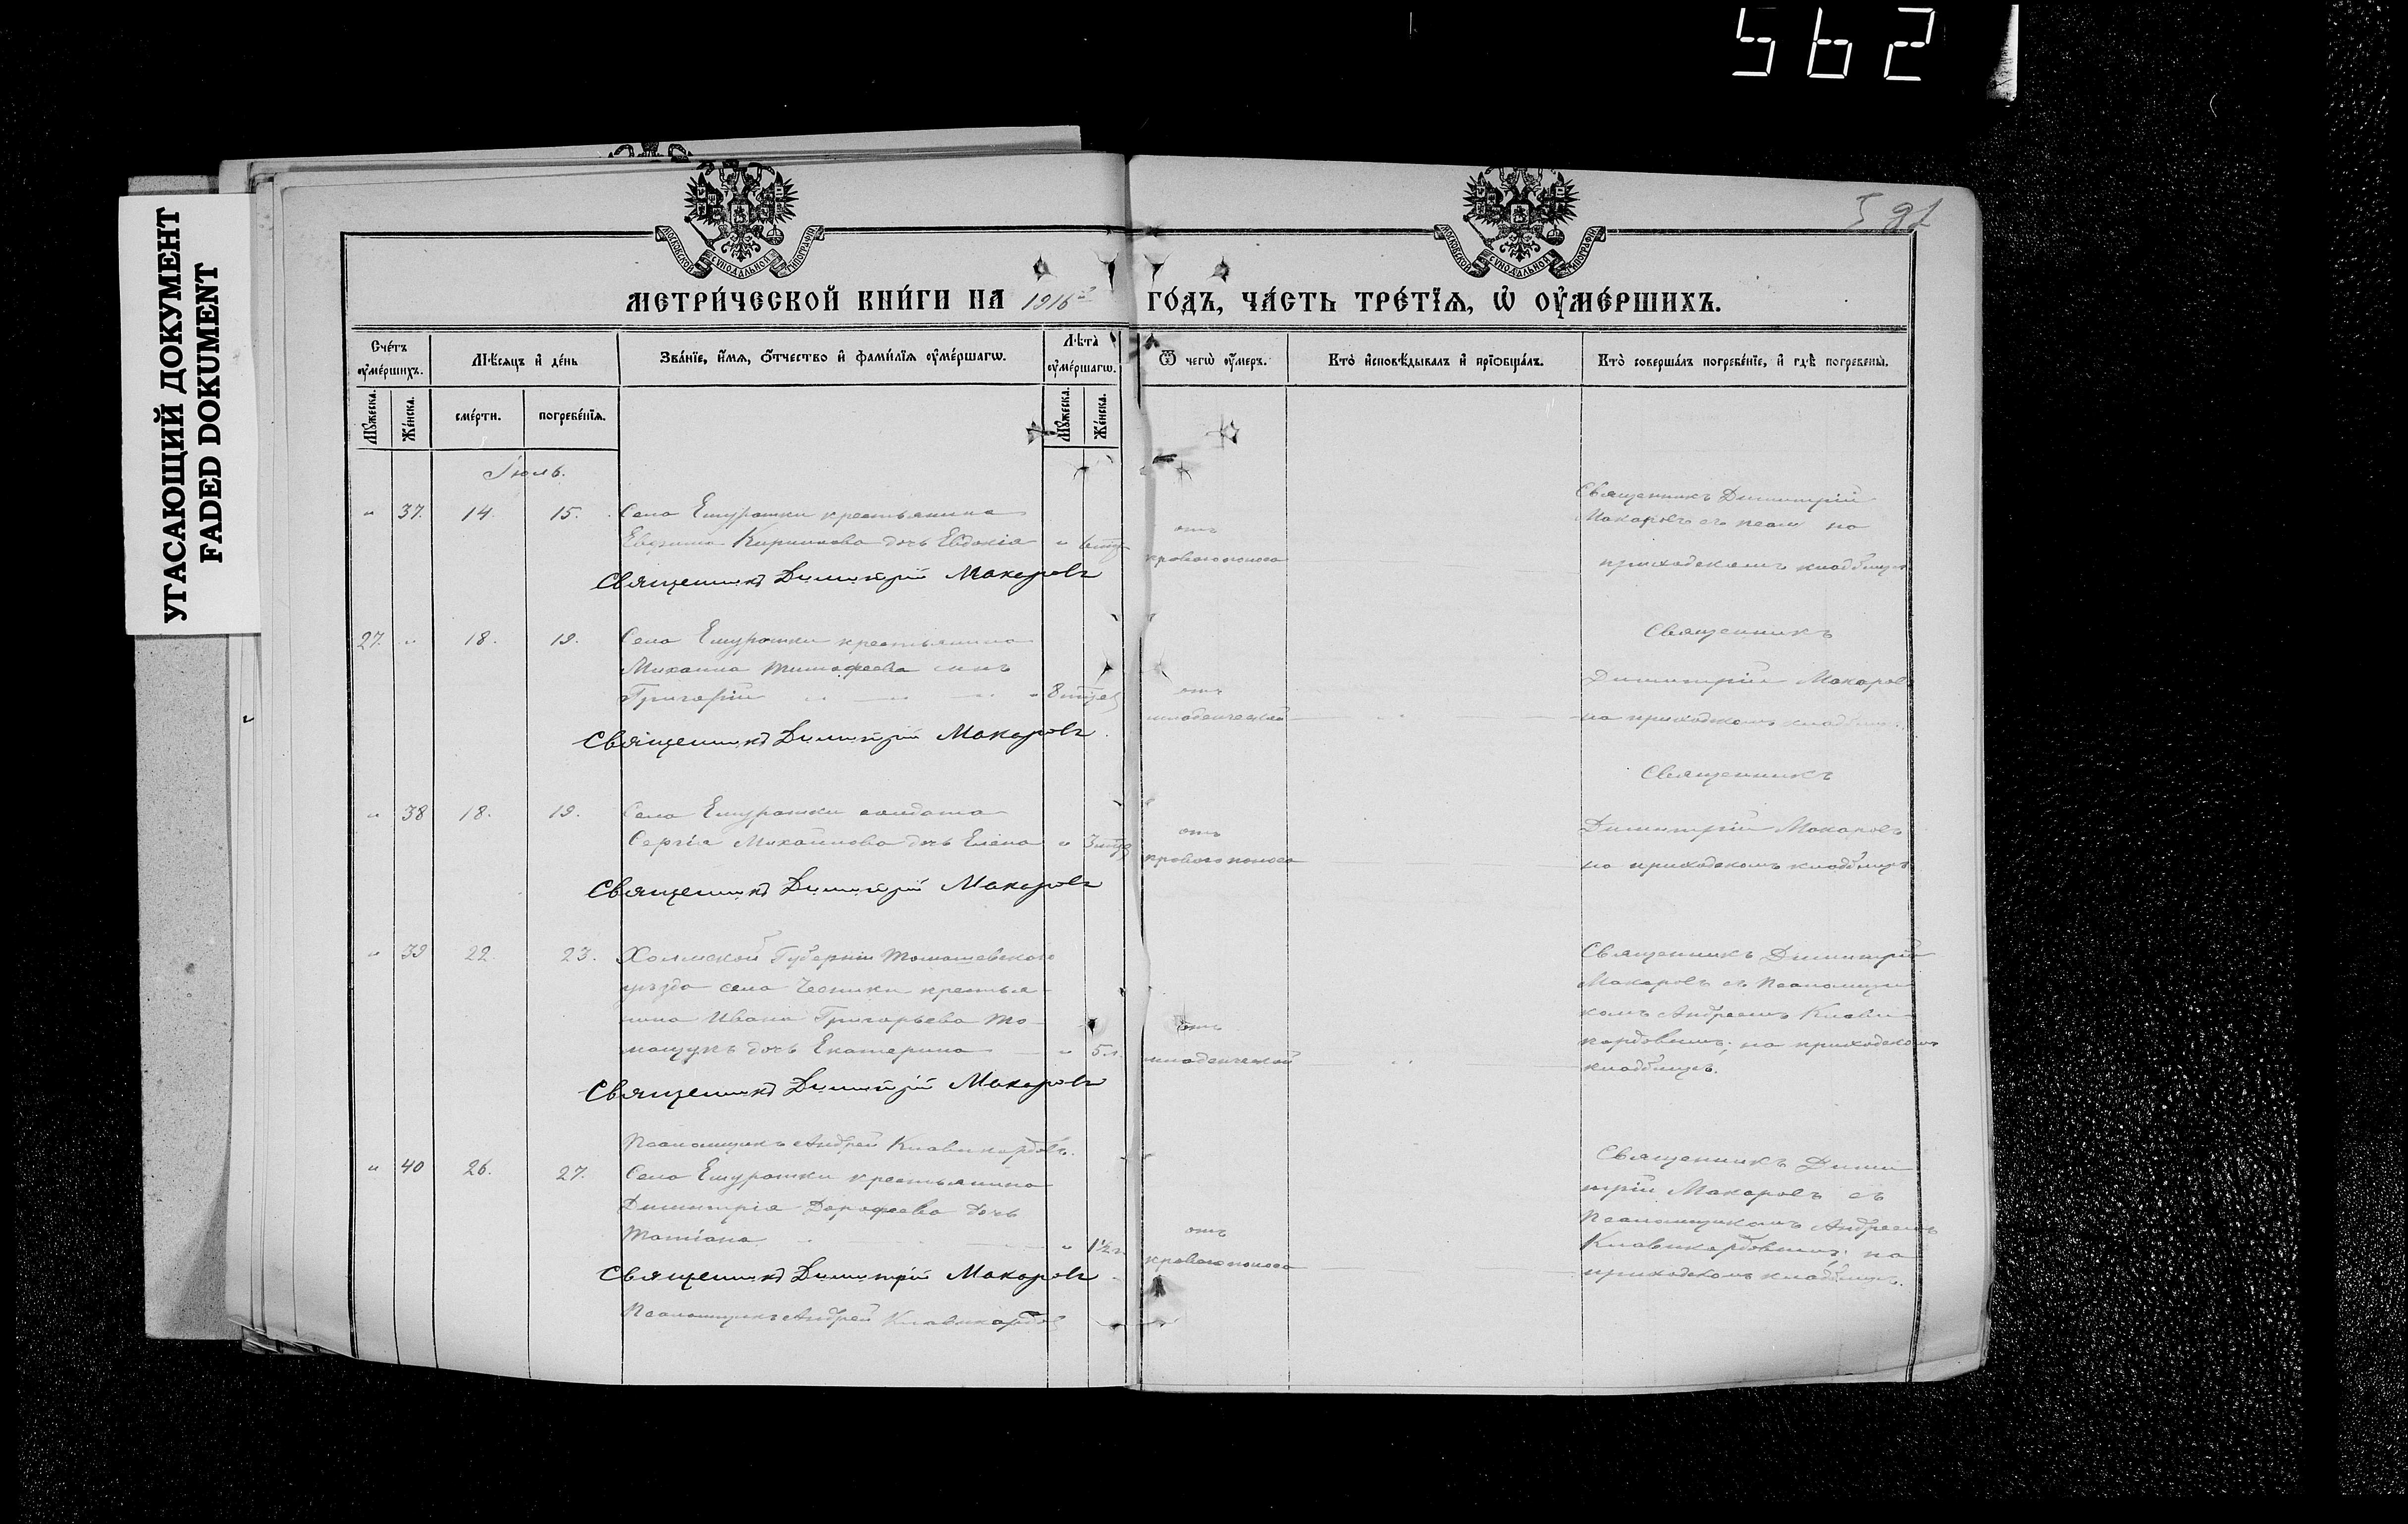 562
УГАСАЮЩИЙ ДОКУМЕНТ
FADED DOKUMENT
МОСКОВСКОЙ СѴНОДАЛЬНОЙ ТИПОГРАФІИ
МОСКОВСКОЙ СѴНОДАЛЬНОЙ ТИПОГРАФІИ
МЕТРИ́ЧЕСКОЙ КНИ́ГИ НА 1916 ГО́ДЪ, ЧА́СТЬ ТРЕ́ТІЯ, Ѡ ОУМЕ́РШИХЪ.
Сче́тъ оумершихъ.
Мѣсяцъ и де́нь
Зва́ніе, и́мя, о́тчество и фами́лія оуме́ршагѡ.
Лѣта оуме́ршагѡ.
Ѿ чегѡ̀ оу́меръ.
Кто̀ исповѣ́дывалъ и пріобща́лъ.
Кто̀ соверша́лъ погребе́ніе, и гдѣ̀ погребены̀.
Мꙋжеска.
Же́нска.
сме́рти.
погребе́нія.
Мꙋжеска.
Же́нска.
Іюль.
" 37. 14. 15. Села Емурашки крестьянина
Кириллова дочь Евдокія "
Священникъ Димитрій Макаровъ
отъ
кроваго поноса
Священникъ Димитрій
Макаровъ съ псал на
приходскомъ кладбищѣ
27. " 18. 19. Села Емурашки крестьянина
Михаила Тимофеева сынъ
Григорій 8 мѣс
Священникъ Димитрій Макаровъ.
отъ
младенческой
Священникъ
Димитрій Макаровъ
на приходскомъ кладбищ.
" 38 18. 19. Села Емурашки солдата
Сергія Михайлова дочь Елена " 3
Священникъ Димитрій Макаровъ
отъ
кроваго поноса
Священникъ
Димитрій Макаровъ
на приходскомъ кладбищѣ
" 39 22. 23. Холмской Губерніи Томашевскаго
уѣзда села Чесники крестья-
нина Ивана Григорьева То-
мащукъ дочь Екатерина " 5 л.
Священникъ Димитрій Макаровъ
Псаломщикъ Андрей Клавикордовъ.
отъ
младенческой
Священникъ Димитрій
Макаровъ съ Псаломщи
комъ Андреемъ Клави
кордовымъ; на приходскомъ
кладбищѣ.
" 40 26. 27. Села Емурашки крестьянина
Димитрія Дорофеева дочь
Татіана " 1½ г.
Священникъ Димитрій Макаровъ
Псаломщикъ Андрей Клавикордовъ
отъ
кроваго поноса
Священникъ Дими
трій Макаровъ съ
Псаломщикомъ Андреемъ
Клавикордовымъ; на
приходскомъ кладбищѣ.